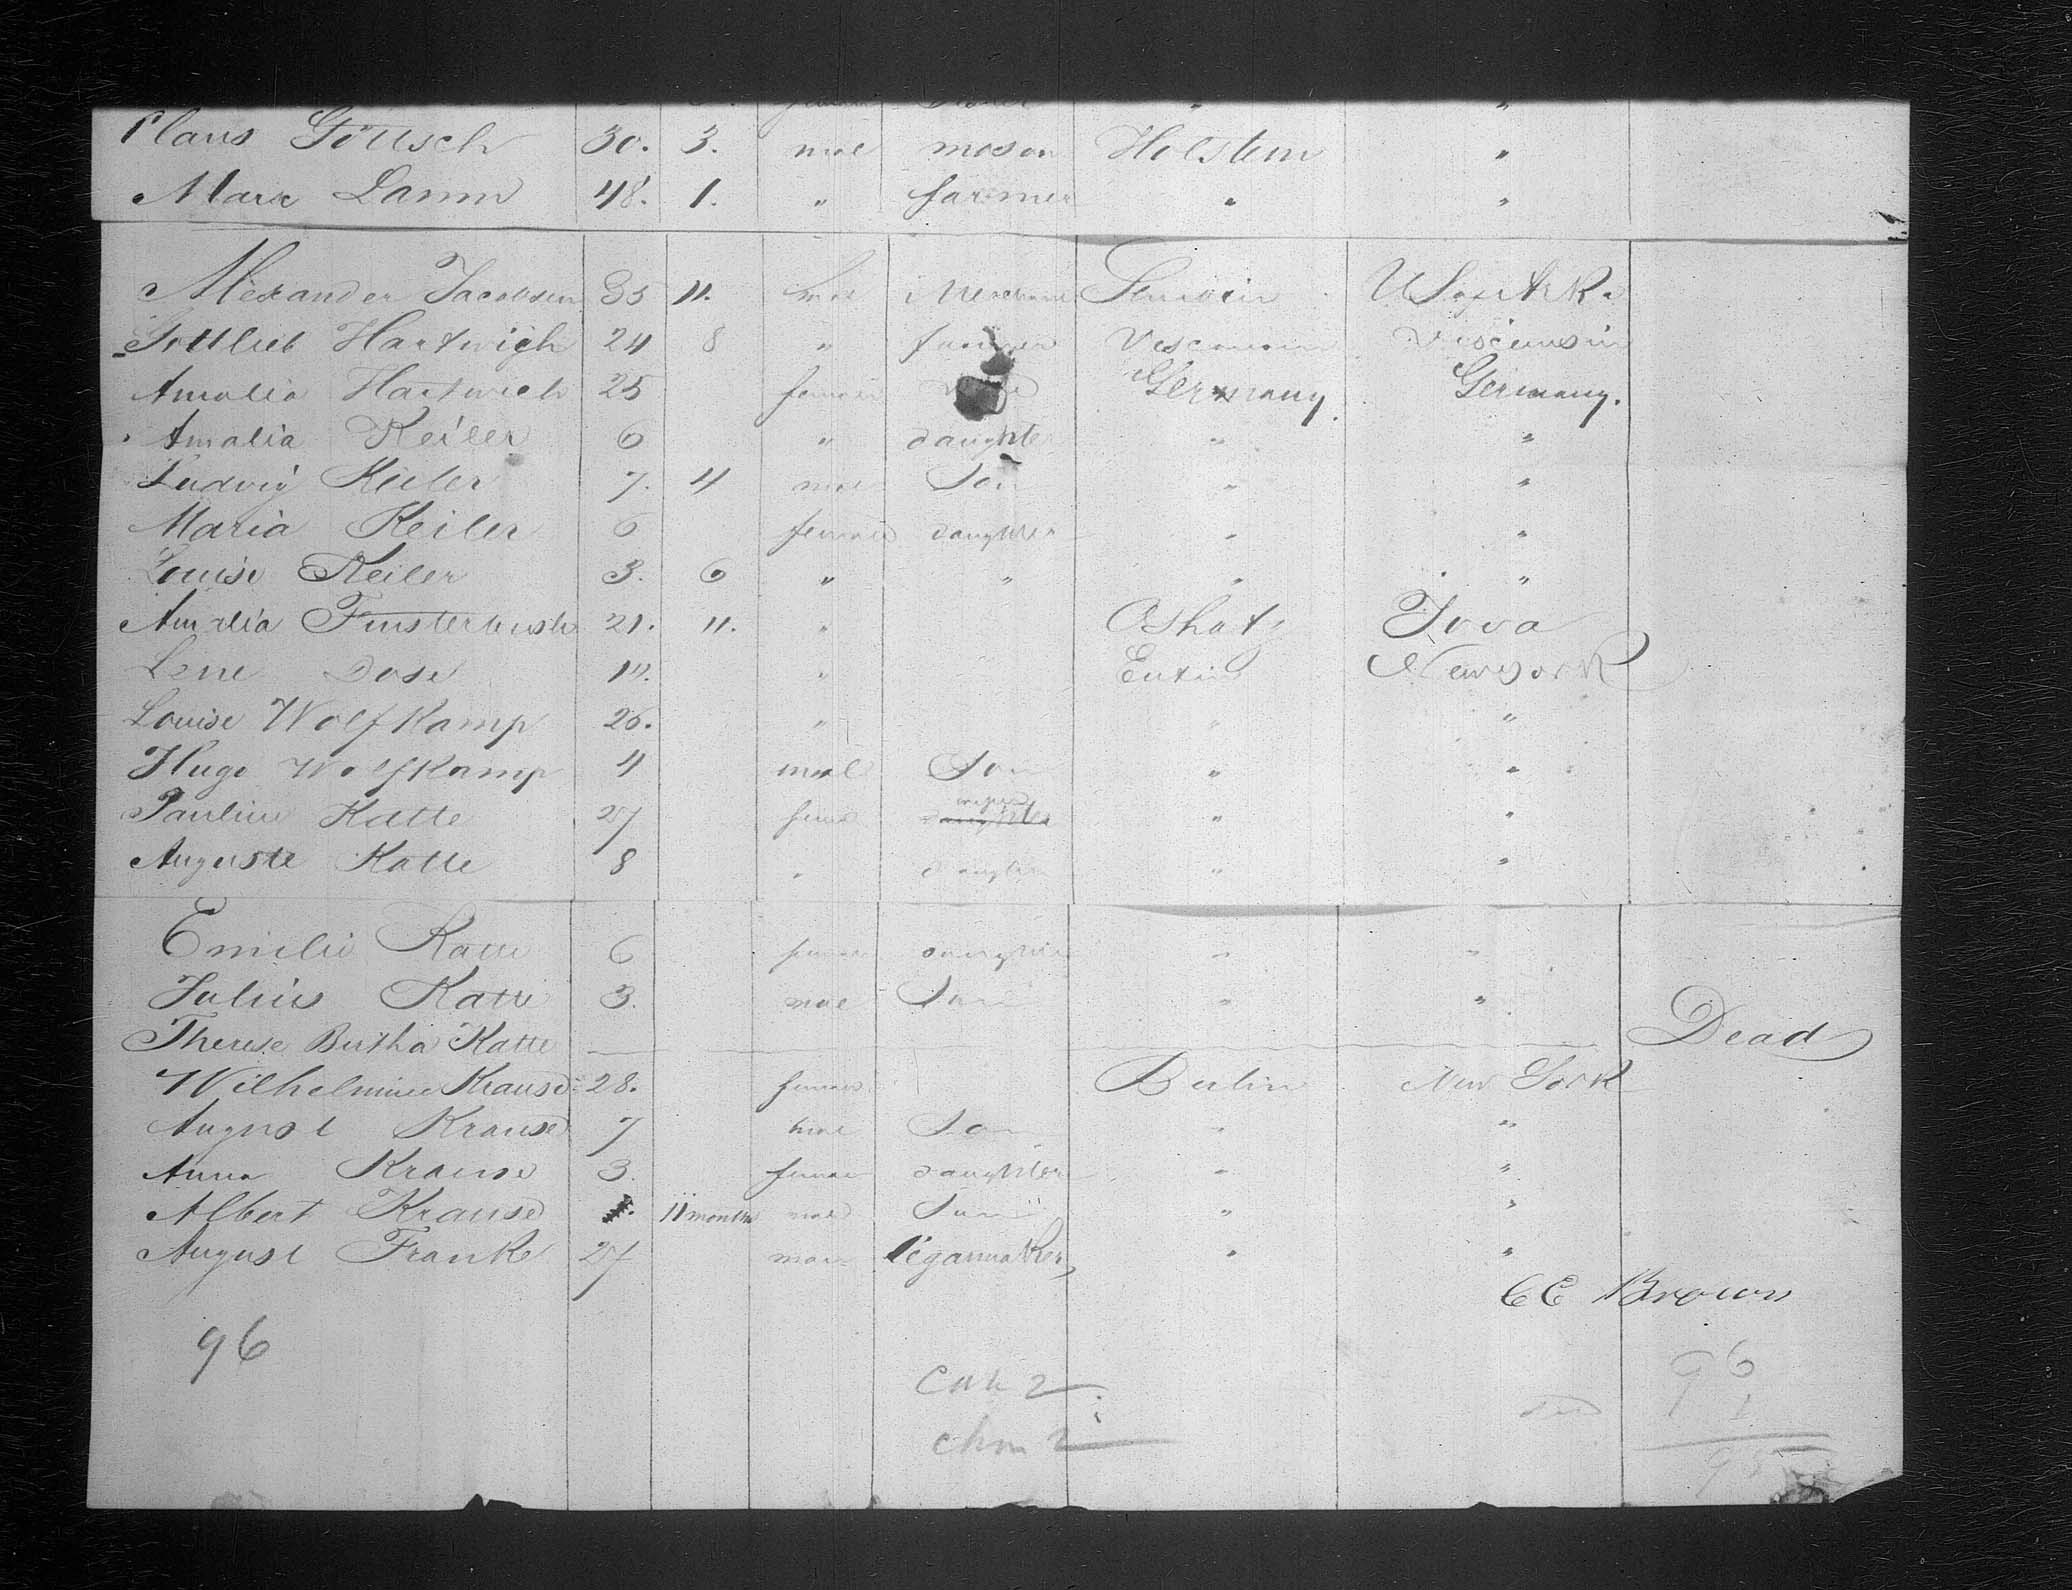 Claus Göttsch 30. 3. mal mason Holstein "
Marx Damm 48. 1. " farmer " "
Alexander Jacobsen 35 11. mal Merchant
Gottlieb Hartwigh 24 8 " farmer Visconsin Visconsin
Amalia Hartwich 25 female Germany Germany.
Amalia Keiler 6 " daughter " "
Ludvig Keiler 7. 4 mal Son " "
Maria Keiler 6 female daughter " "
Louise Keiler 3. 6 " " " "
Amalia Finsterbush 21. 11. " Oshatz Iova
Lene Dose " Eutin Newyork
Louise Wolfkamp 26. " " "
Hugo Wolfkamp 4 mal Son " "
Pauline Katte 27 female daughter " "
Auguste Katte 8 " daughter " "
Emilie Katte 6 female daughter " "
Julius Katte 3. mal Son " "
Therese Bertha Katte Dead
Wilhelmine Krause 28. female Berlin New York
August Krause 7 mal Son " "
Anna Krause 3. female daughter " "
Albert Krause 11 months mal Son " "
August Franke 27 mal Cigarmaker " "
CE Brown
96
96
1
95